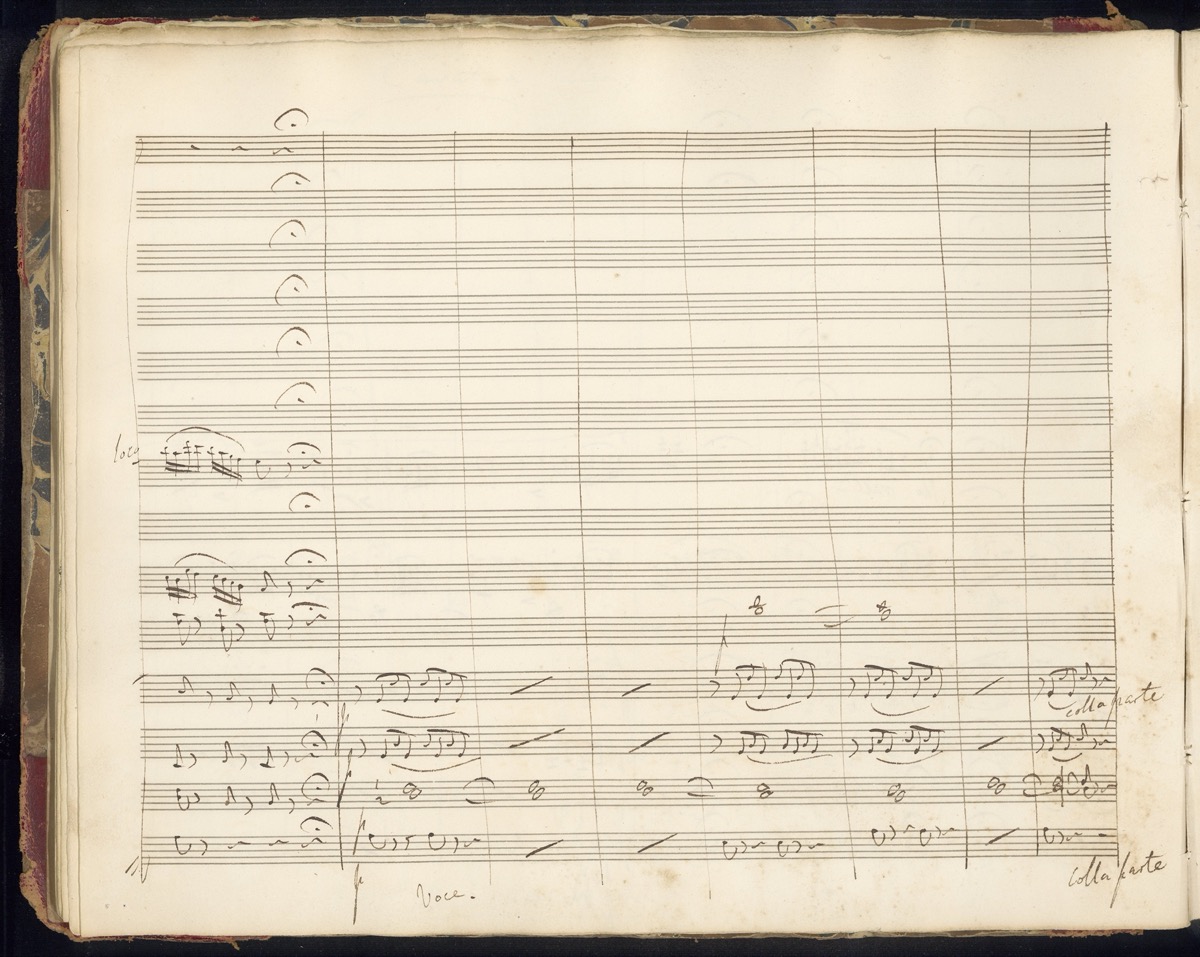 loco
colla parte
p
p
p
p
Voce.
colla parte